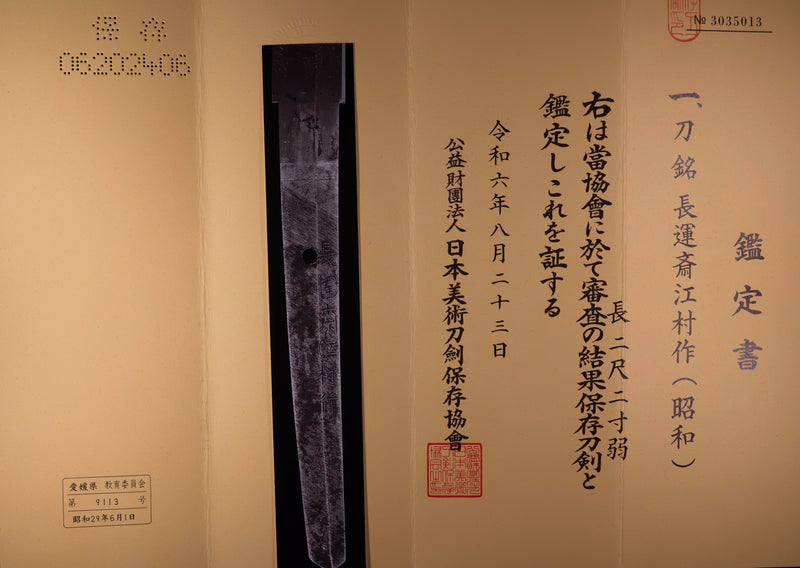 № 3035013
鑑定書
一、刀 銘 長運斎江村作(昭和)
長二尺二寸弱
右は當協會に於て審査の結果保存刀剣と
鑑定しこれを証する
令和六年八月二十三日
公益財團法人 日本美術刀劍保存協會
長運斎江村作
保存
06202406
愛媛県 教育委員会
第 9113 号
昭和29年6月1日